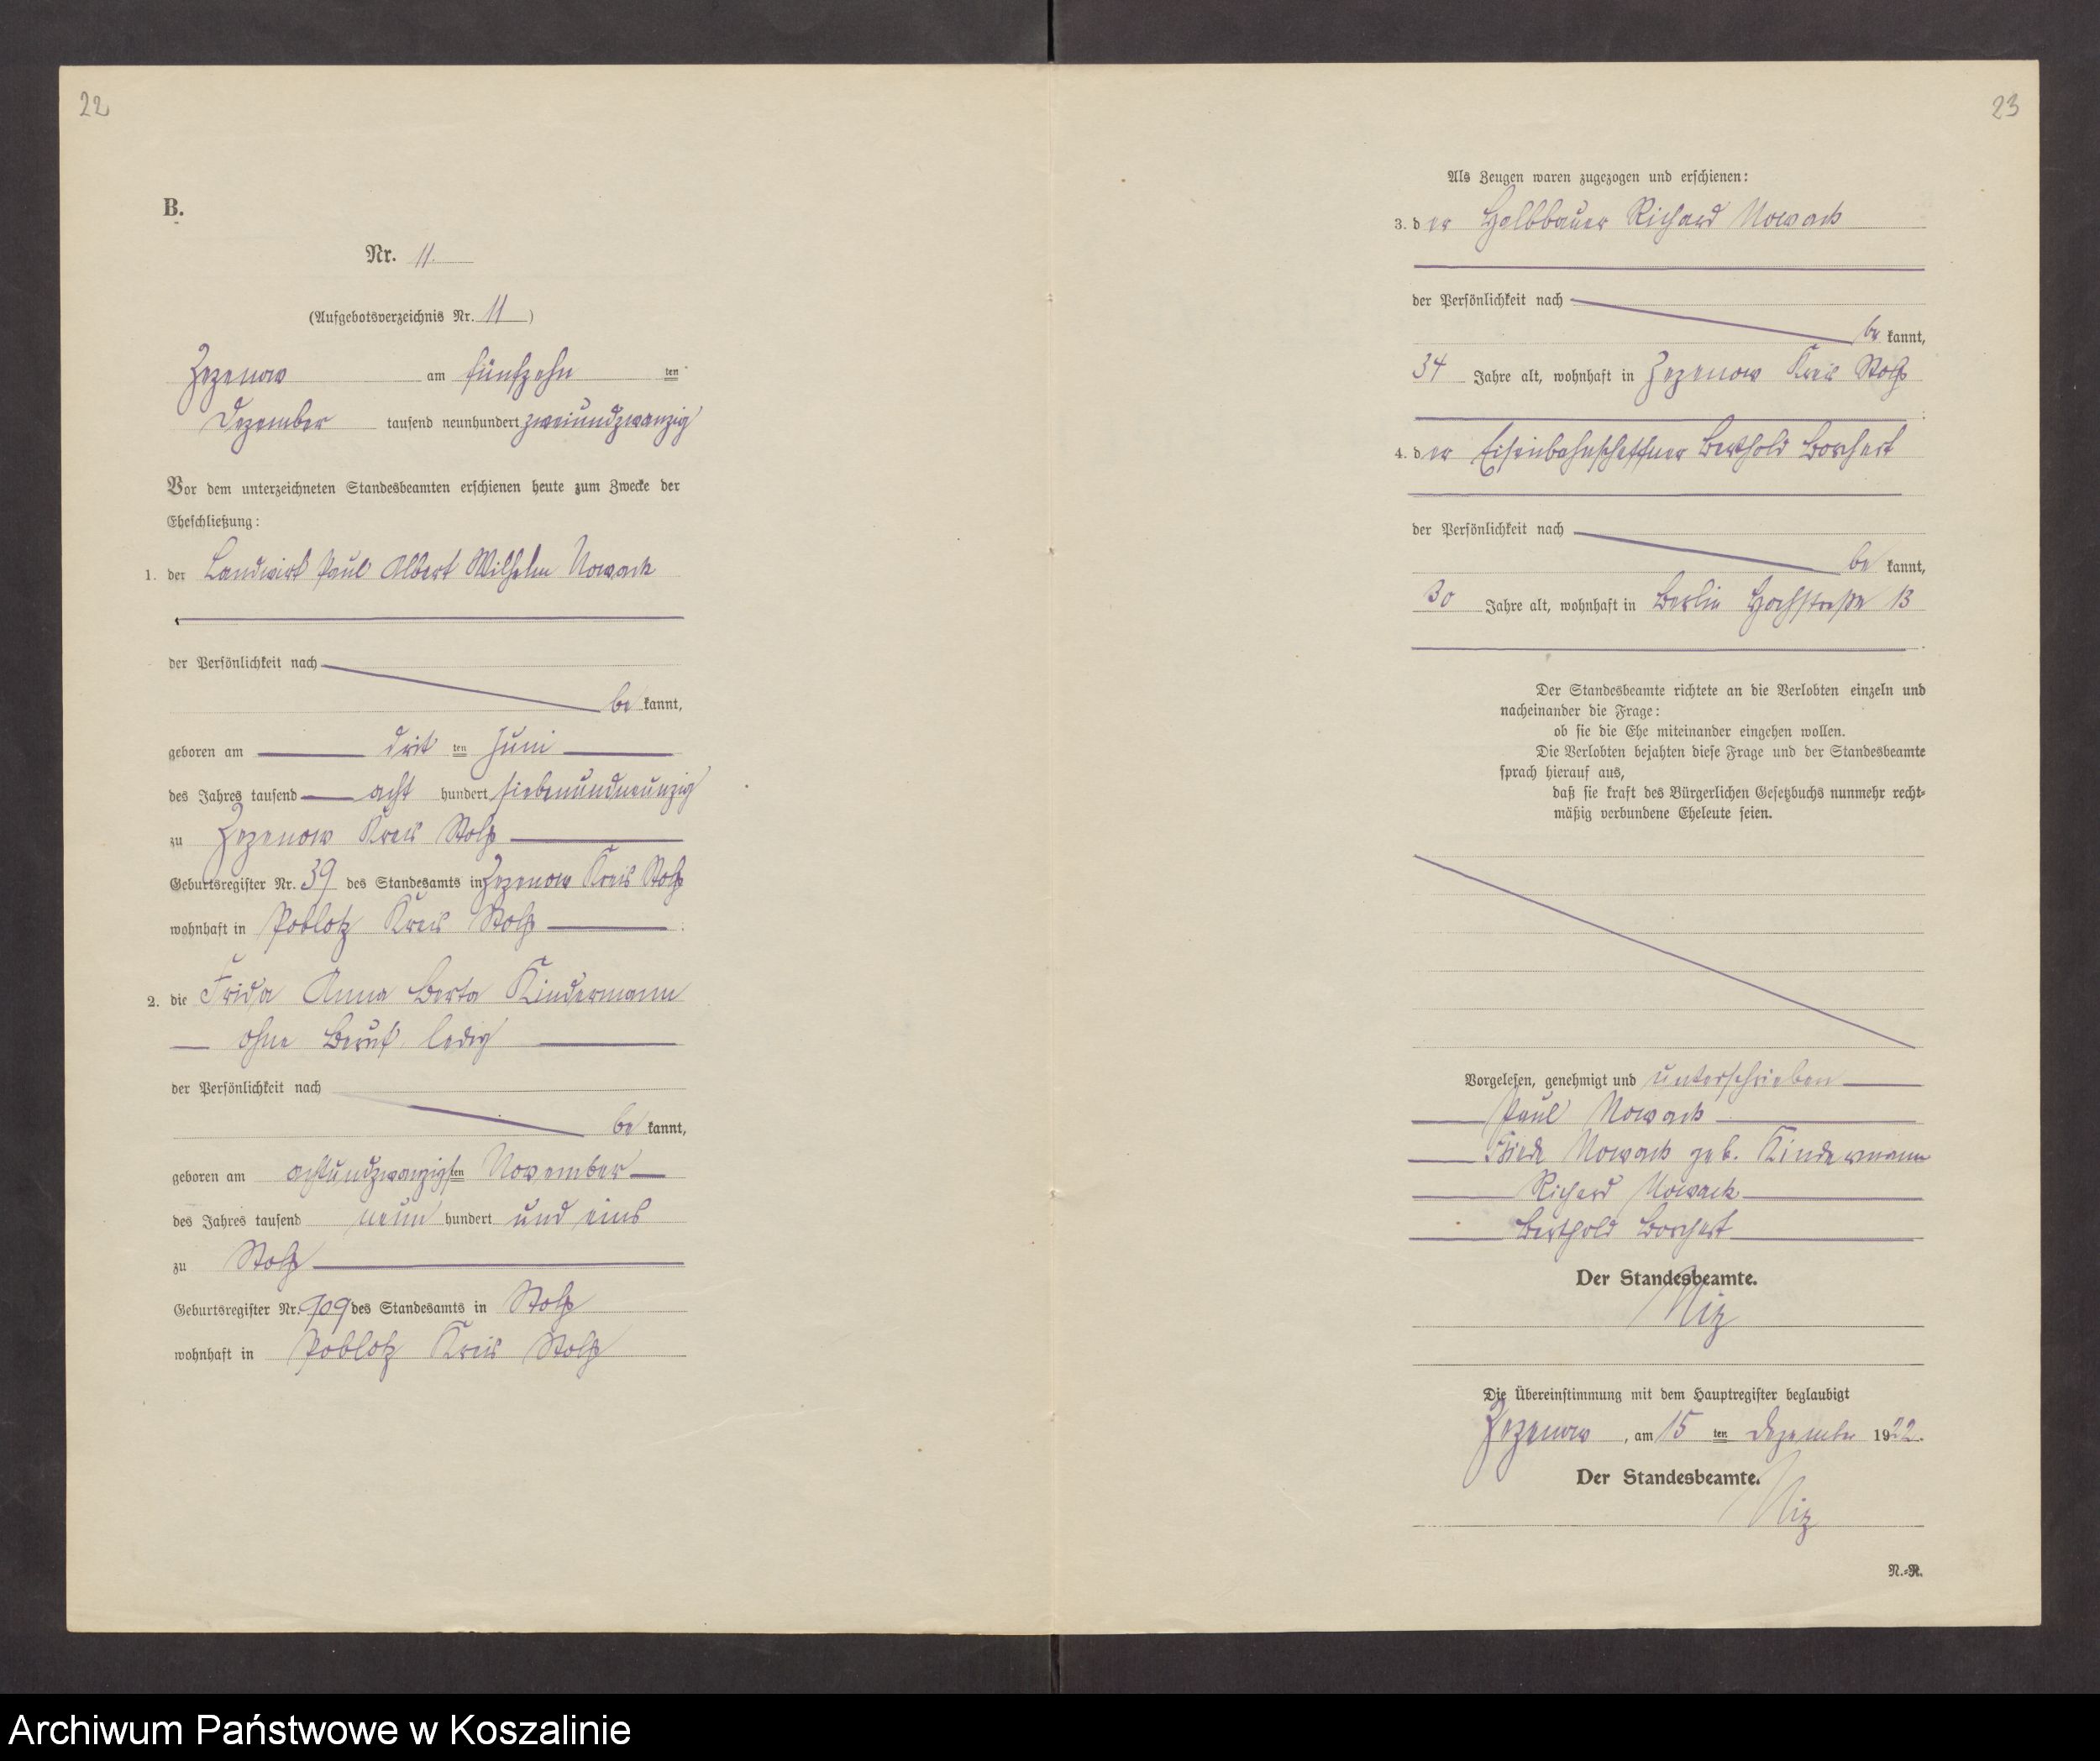 22
B.
Nr. 11.
(Aufgebotsverzeichnis Nr. 11)
Zezenow am fünfzehn ten
Dezember tausend neunhundert zweiundzwanzig
Vor dem unterzeichneten Standesbeamten erschienen heute zum Zwecke der
Eheschließung:
1. der Landwirt Paul Albert Wilhelm Nowack
der Persönlichkeit nach
be kannt,
geboren am drit ten Juni
des Jahres tausend acht hundert siebenundneunzig
zu Zezenow Kreis Stolp
Geburtsregister Nr. 39 des Standesamts in Zezenow Kreis Stolp
wohnhaft in Poblotz Kreis Stolp
2. die Frida Anna Berta Kindermann
ohne Beruf ledig
der Persönlichkeit nach
be kannt,
geboren am achtundzwanzigsten November
des Jahres tausend neun hundert und eins
zu Stolp
Geburtsregister Nr. 909 des Standesamts in Stolp
wohnhaft in Poblotz Kreis Stolp
23
Als Zeugen waren zugezogen und erschienen:
3. der Halbbauer Richard Nowack
der Persönlichkeit nach
be kannt,
34 Jahre alt, wohnhaft in Zezenow Kreis Stolp
4. der Eisenbahnschaffner Berthold Borchert
der Persönlichkeit nach
be kannt,
30 Jahre alt, wohnhaft in Berlin Hochstraße 13
Der Standesbeamte richtete an die Verlobten einzeln und
nacheinander die Frage:
ob sie die Ehe miteinander eingehen wollen.
Die Verlobten bejahten diese Frage und der Standesbeamte
sprach hierauf aus,
daß sie kraft des Bürgerlichen Gesetzbuchs nunmehr recht-
mäßig verbundene Eheleute seien.
Vorgelesen, genehmigt und unterschrieben
Paul Nowack
Friede Nowack geb. Kindermann
Richard Nowack
Berthold Borchert
Der Standesbeamte.
Die Übereinstimmung mit dem Hauptregister beglaubigt
Zezenow, am 15 ten Dezember 1922.
Der Standesbeamte.
N.-R.
Archiwum Państwowe w Koszalinie